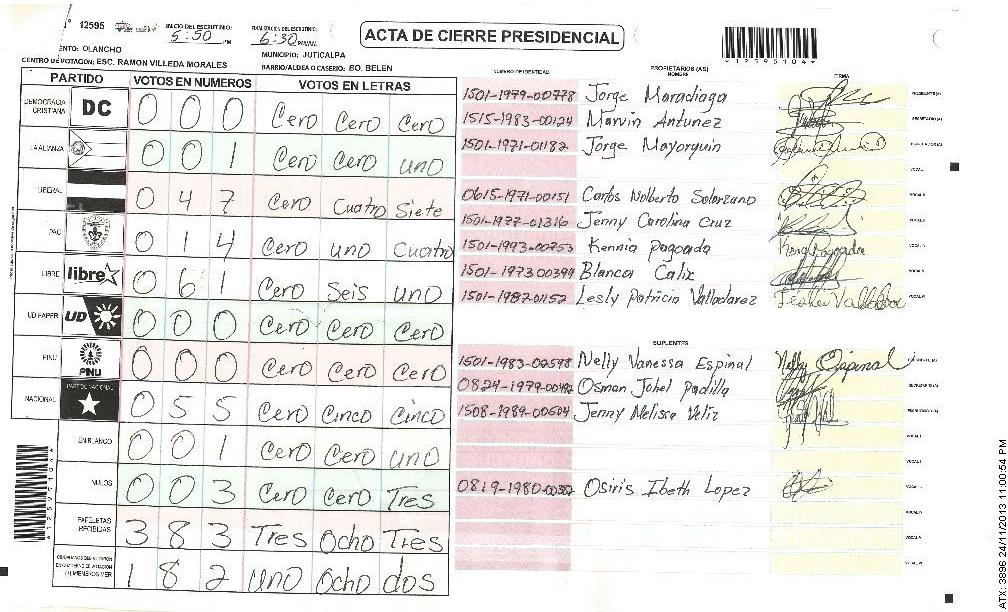 N° 12595
INICIO DEL ESCRUTINIO:
5:50 PM
FINALIZACION DEL ESCRUTINIO:
6:30 PM/AM
ACTA DE CIERRE PRESIDENCIAL
*12595104*
ENTO: OLANCHO
MUNICIPIO: JUTICALPA
CENTRO DE VOTACION: ESC. RAMON VILLEDA MORALES
BARRIO/ALDEA O CASERIO: BO. BELEN
PARTIDO VOTOS EN NUMEROS VOTOS EN LETRAS
DEMOCRACIA CRISTIANA DC 0 0 0 Cero Cero Cero
LA ALIANZA 0 0 1 Cero Cero uno
LIBERAL 0 4 7 Cero Cuatro Siete
PAC 0 1 4 Cero uno Cuatro
LIBRE libre 0 6 1 Cero Seis uno
UD FAPER UD 0 0 0 Cero Cero Cero
PINU PINU 0 0 0 Cero Cero Cero
NACIONAL PARTIDO NACIONAL 0 5 5 Cero Cinco Cinco
EN BLANCO 0 0 1 Cero Cero uno
NULOS 0 0 3 Cero Cero Tres
PAPELETAS RECIBIDAS 3 8 3 Tres Ocho Tres
1 8 2 uno Ocho dos
NUMERO DE IDENTIDAD
PROPIETARIOS (AS)
NOMBRE
FIRMA
1501-1979-00778 Jorge Maradiaga PRESIDENTE (A)
1515-1983-00124 Marvin Antunez SECRETARIO (A)
1501-1971-01182 Jorge Mayorquin ESCRUTADOR (A)
VOCAL I
0615-1971-00151 Carlos Nolberto Solorzano VOCAL II
1501-1977-01316 Jenny Carolina Cruz VOCAL III
1501-1993-00753 Kennia Pagoada VOCAL IV
1501-1973 00399 Blanca Calix VOCAL V
1501-1987-01157 Lesly Patricia Valladarez VOCAL VI
SUPLENTES
1501-1983-00598 Nelly Vanessa Espinal PRESIDENTE (A)
0824-1979-00492 Osman Johel Padilla SECRETARIO (A)
1508-1989-00504 Jenny Melissa Veliz ESCRUTADOR (A)
VOCAL I
VOCAL II
0819-1980-00382 Osiris Ibeth Lopez VOCAL III
VOCAL IV
VOCAL V
VOCAL VI
*12595104*
ATX: 3896 24/11/2013 11:00:54 PM